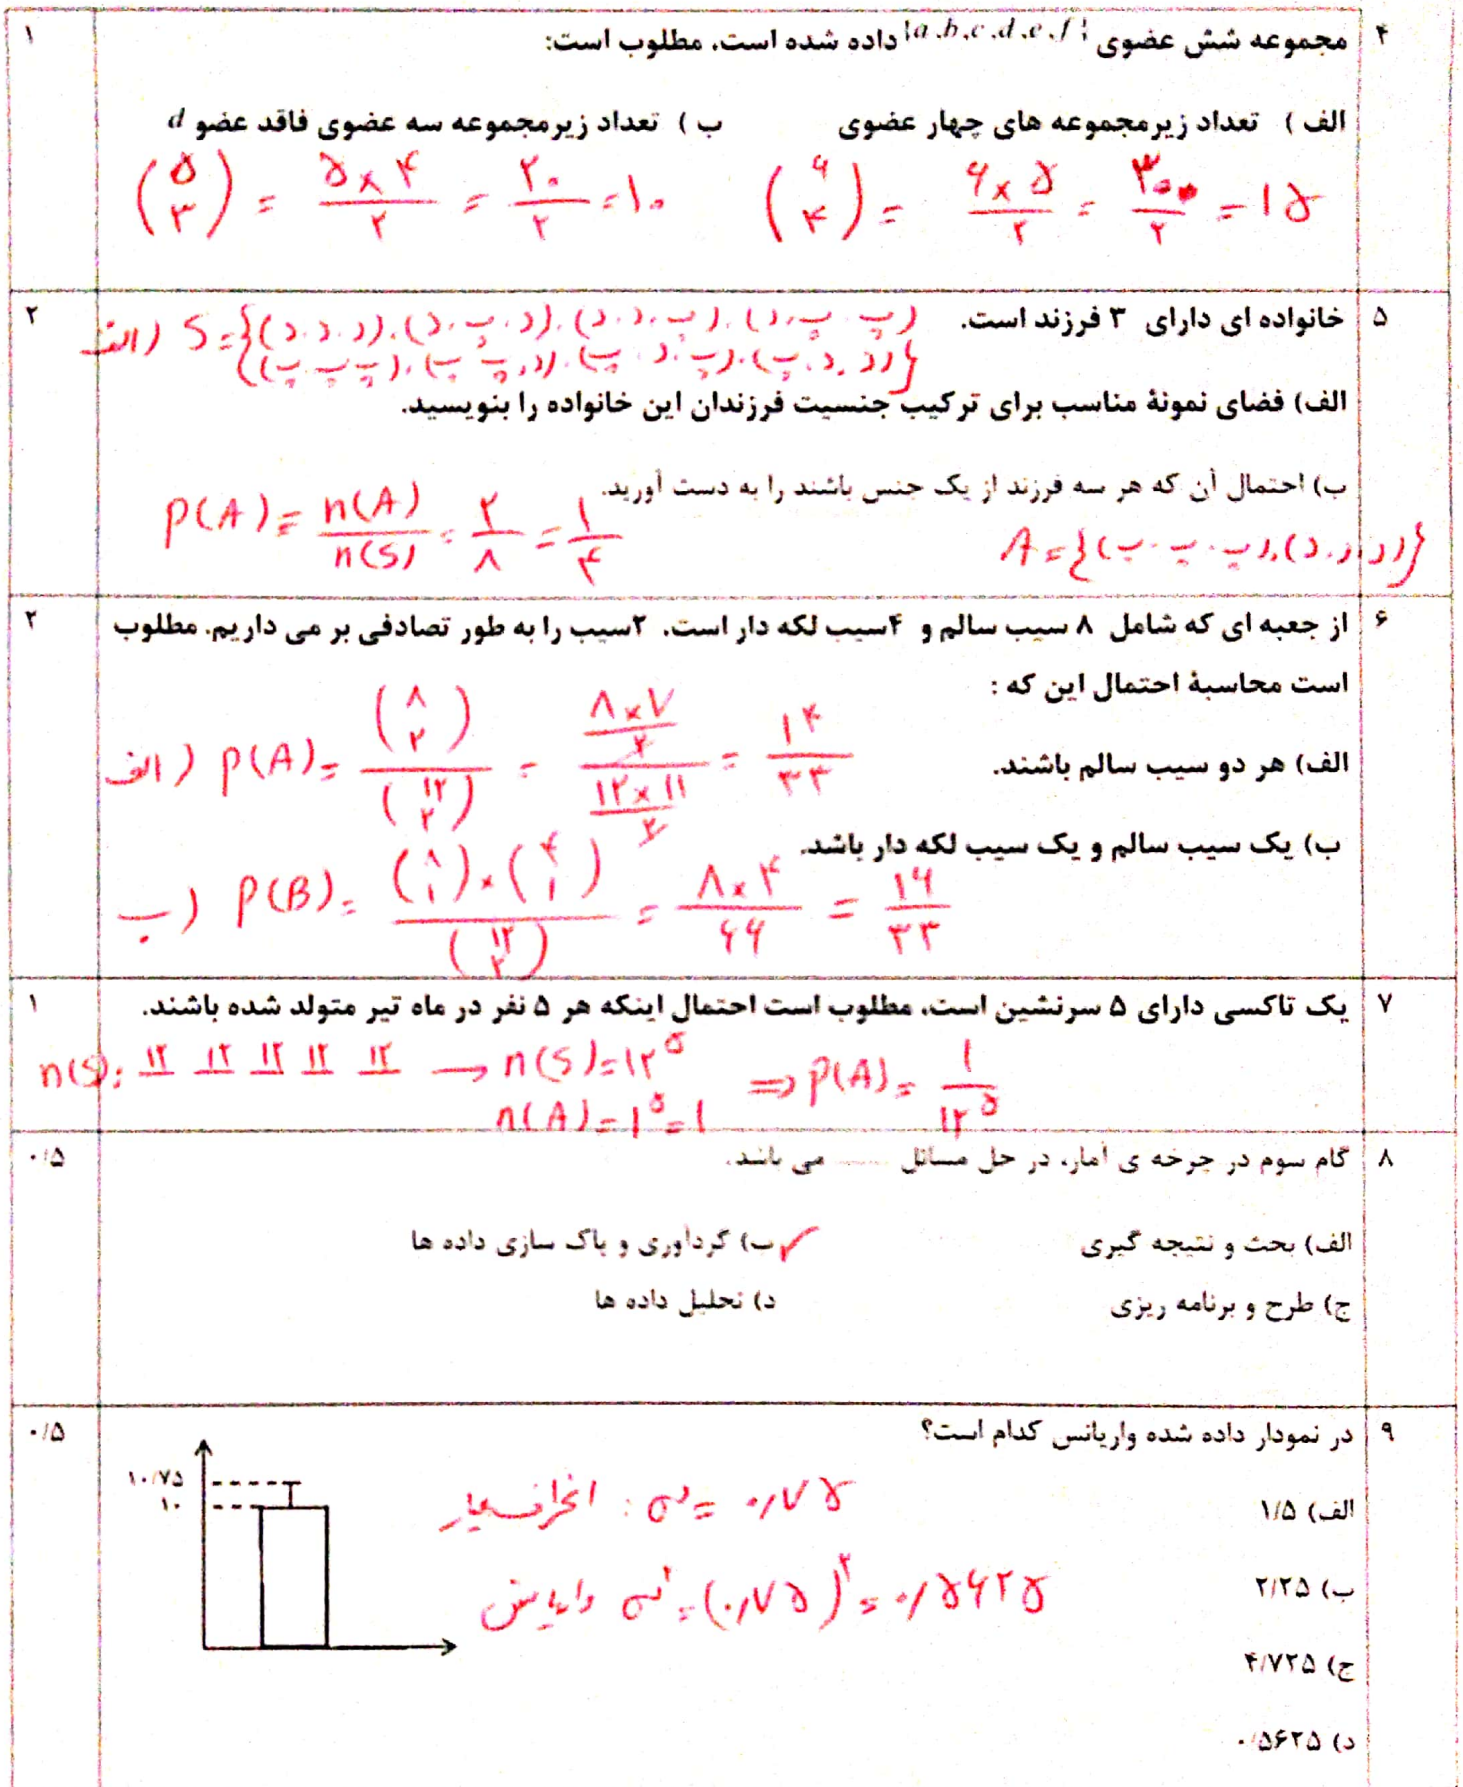 ۴ مجموعه شش عضوی {a,b,c,d,e,f} داده شده است. مطلوب است: ۱
الف ) تعداد زیرمجموعه های چهار عضوی ب ) تعداد زیرمجموعه سه عضوی فاقد عضو d
(۶ ۴) = ۶×۵/۲ = ۳۰/۲ = ۱۵
(۵ ۳) = ۵×۴/۲ = ۲۰/۲ = ۱۰
۵ خانواده ای دارای ۳ فرزند است. ۲
الف) S={(د.د.د),(د.پ.د),(پ.د.د),(پ.پ.د)
(د.د.پ),(پ.د.پ),(د.پ.پ),(پ.پ.پ)}
الف) فضای نمونهٔ مناسب برای ترکیب جنسیت فرزندان این خانواده را بنویسید.
ب) احتمال آن که هر سه فرزند از یک جنس باشند را به دست آورید.
P(A) = n(A)/n(S) = ۲/۸ = ۱/۴
A={(پ.پ.پ),(د.د.د)}
۶ از جعبه ای که شامل ۸ سیب سالم و ۴سیب لکه دار است. ۲سیب را به طور تصادفی بر می داریم. مطلوب ۲
است محاسبهٔ احتمال این که :
الف) هر دو سیب سالم باشند.
الف) P(A) = (۸ ۲)/(۱۲ ۲) = (۸×۷/۲)/(۱۲×۱۱/۲) = ۱۴/۳۳
ب) یک سیب سالم و یک سیب لکه دار باشد.
ب) P(B) = (۸ ۱)×(۴ ۱)/(۱۲ ۲) = ۸×۴/۶۶ = ۱۶/۳۳
۷ یک تاکسی دارای ۵ سرنشین است. مطلوب است احتمال اینکه هر ۵ نفر در ماه تیر متولد شده باشند. ۱
n(S): ۱۲ ۱۲ ۱۲ ۱۲ ۱۲ → n(S)=۱۲^۵ ⇒ P(A) = ۱/۱۲^۵
n(A)=۱^۵=۱
۸ گام سوم در چرخه ی آمار، در حل مسائل ....... می باشد. ۰/۵
الف) بحث و نتیجه گیری ب) گردآوری و پاک سازی داده ها ✓
ج) طرح و برنامه ریزی د) تحلیل داده ها
۹ در نمودار داده شده واریانس کدام است؟ ۰/۵
۱۰/۷۵
۱۰
الف) ۱/۵
انحراف معیار : σ = ۰/۷۵
ب) ۲/۲۵
واریانس σ² = (۰/۷۵)² = ۰/۵۶۲۵
ج) ۴/۷۲۵
د) ۰/۵۶۲۵